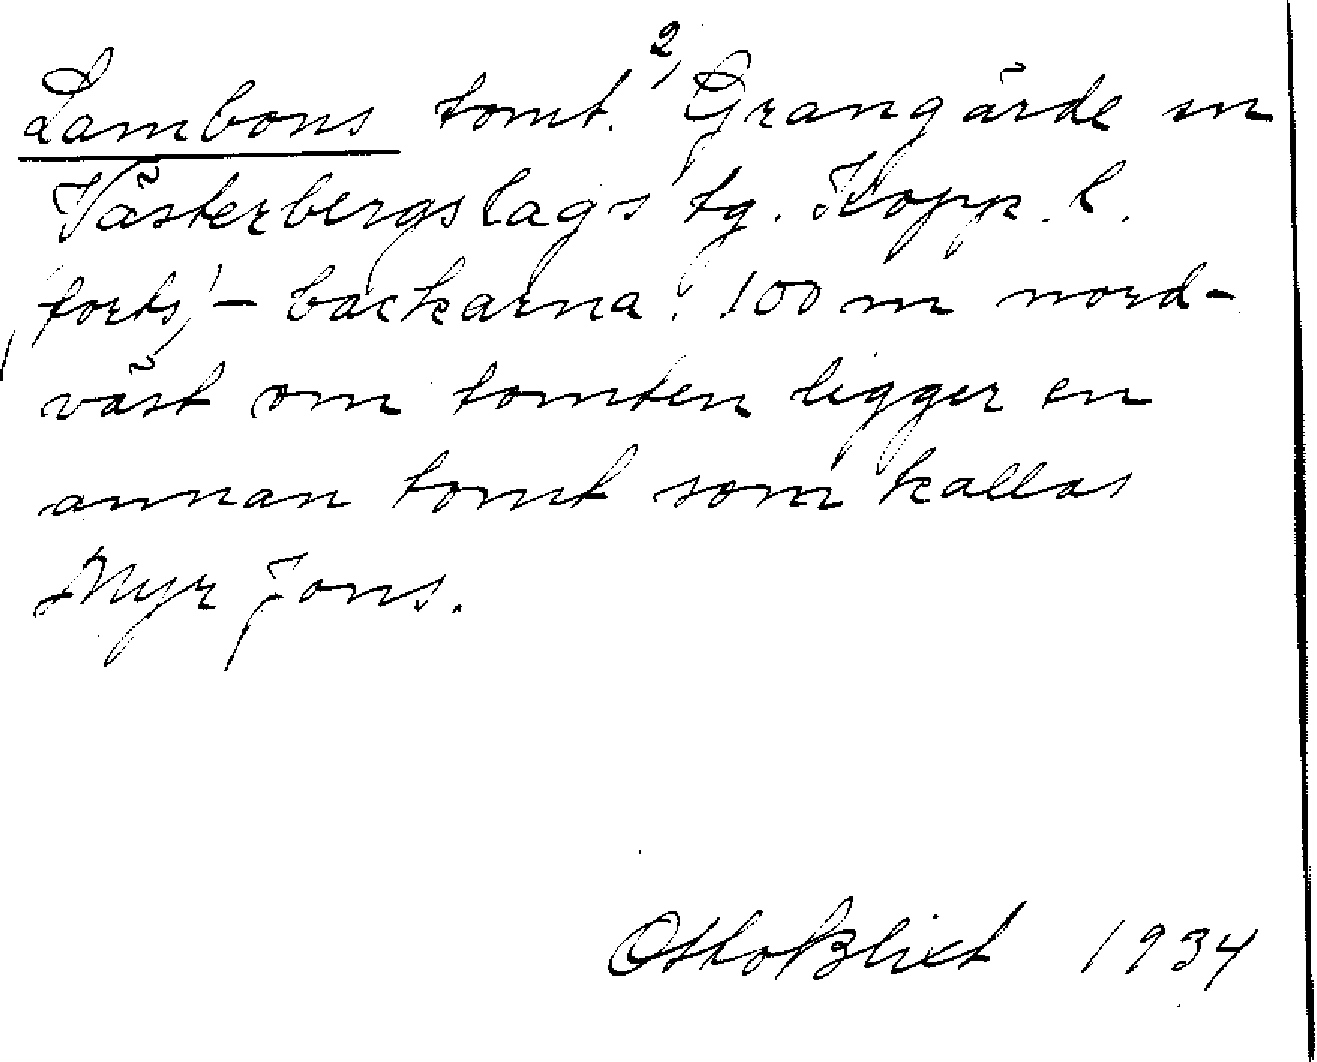 Lambons tomt. 2, Grangärde sn
Västerbergslags tg. Kopp. l.
(forts,) - backarna. 100 m nord-
väst om tomten ligger en
annan tomt som kallas
Myr Jons.
Otto Blixt 1934